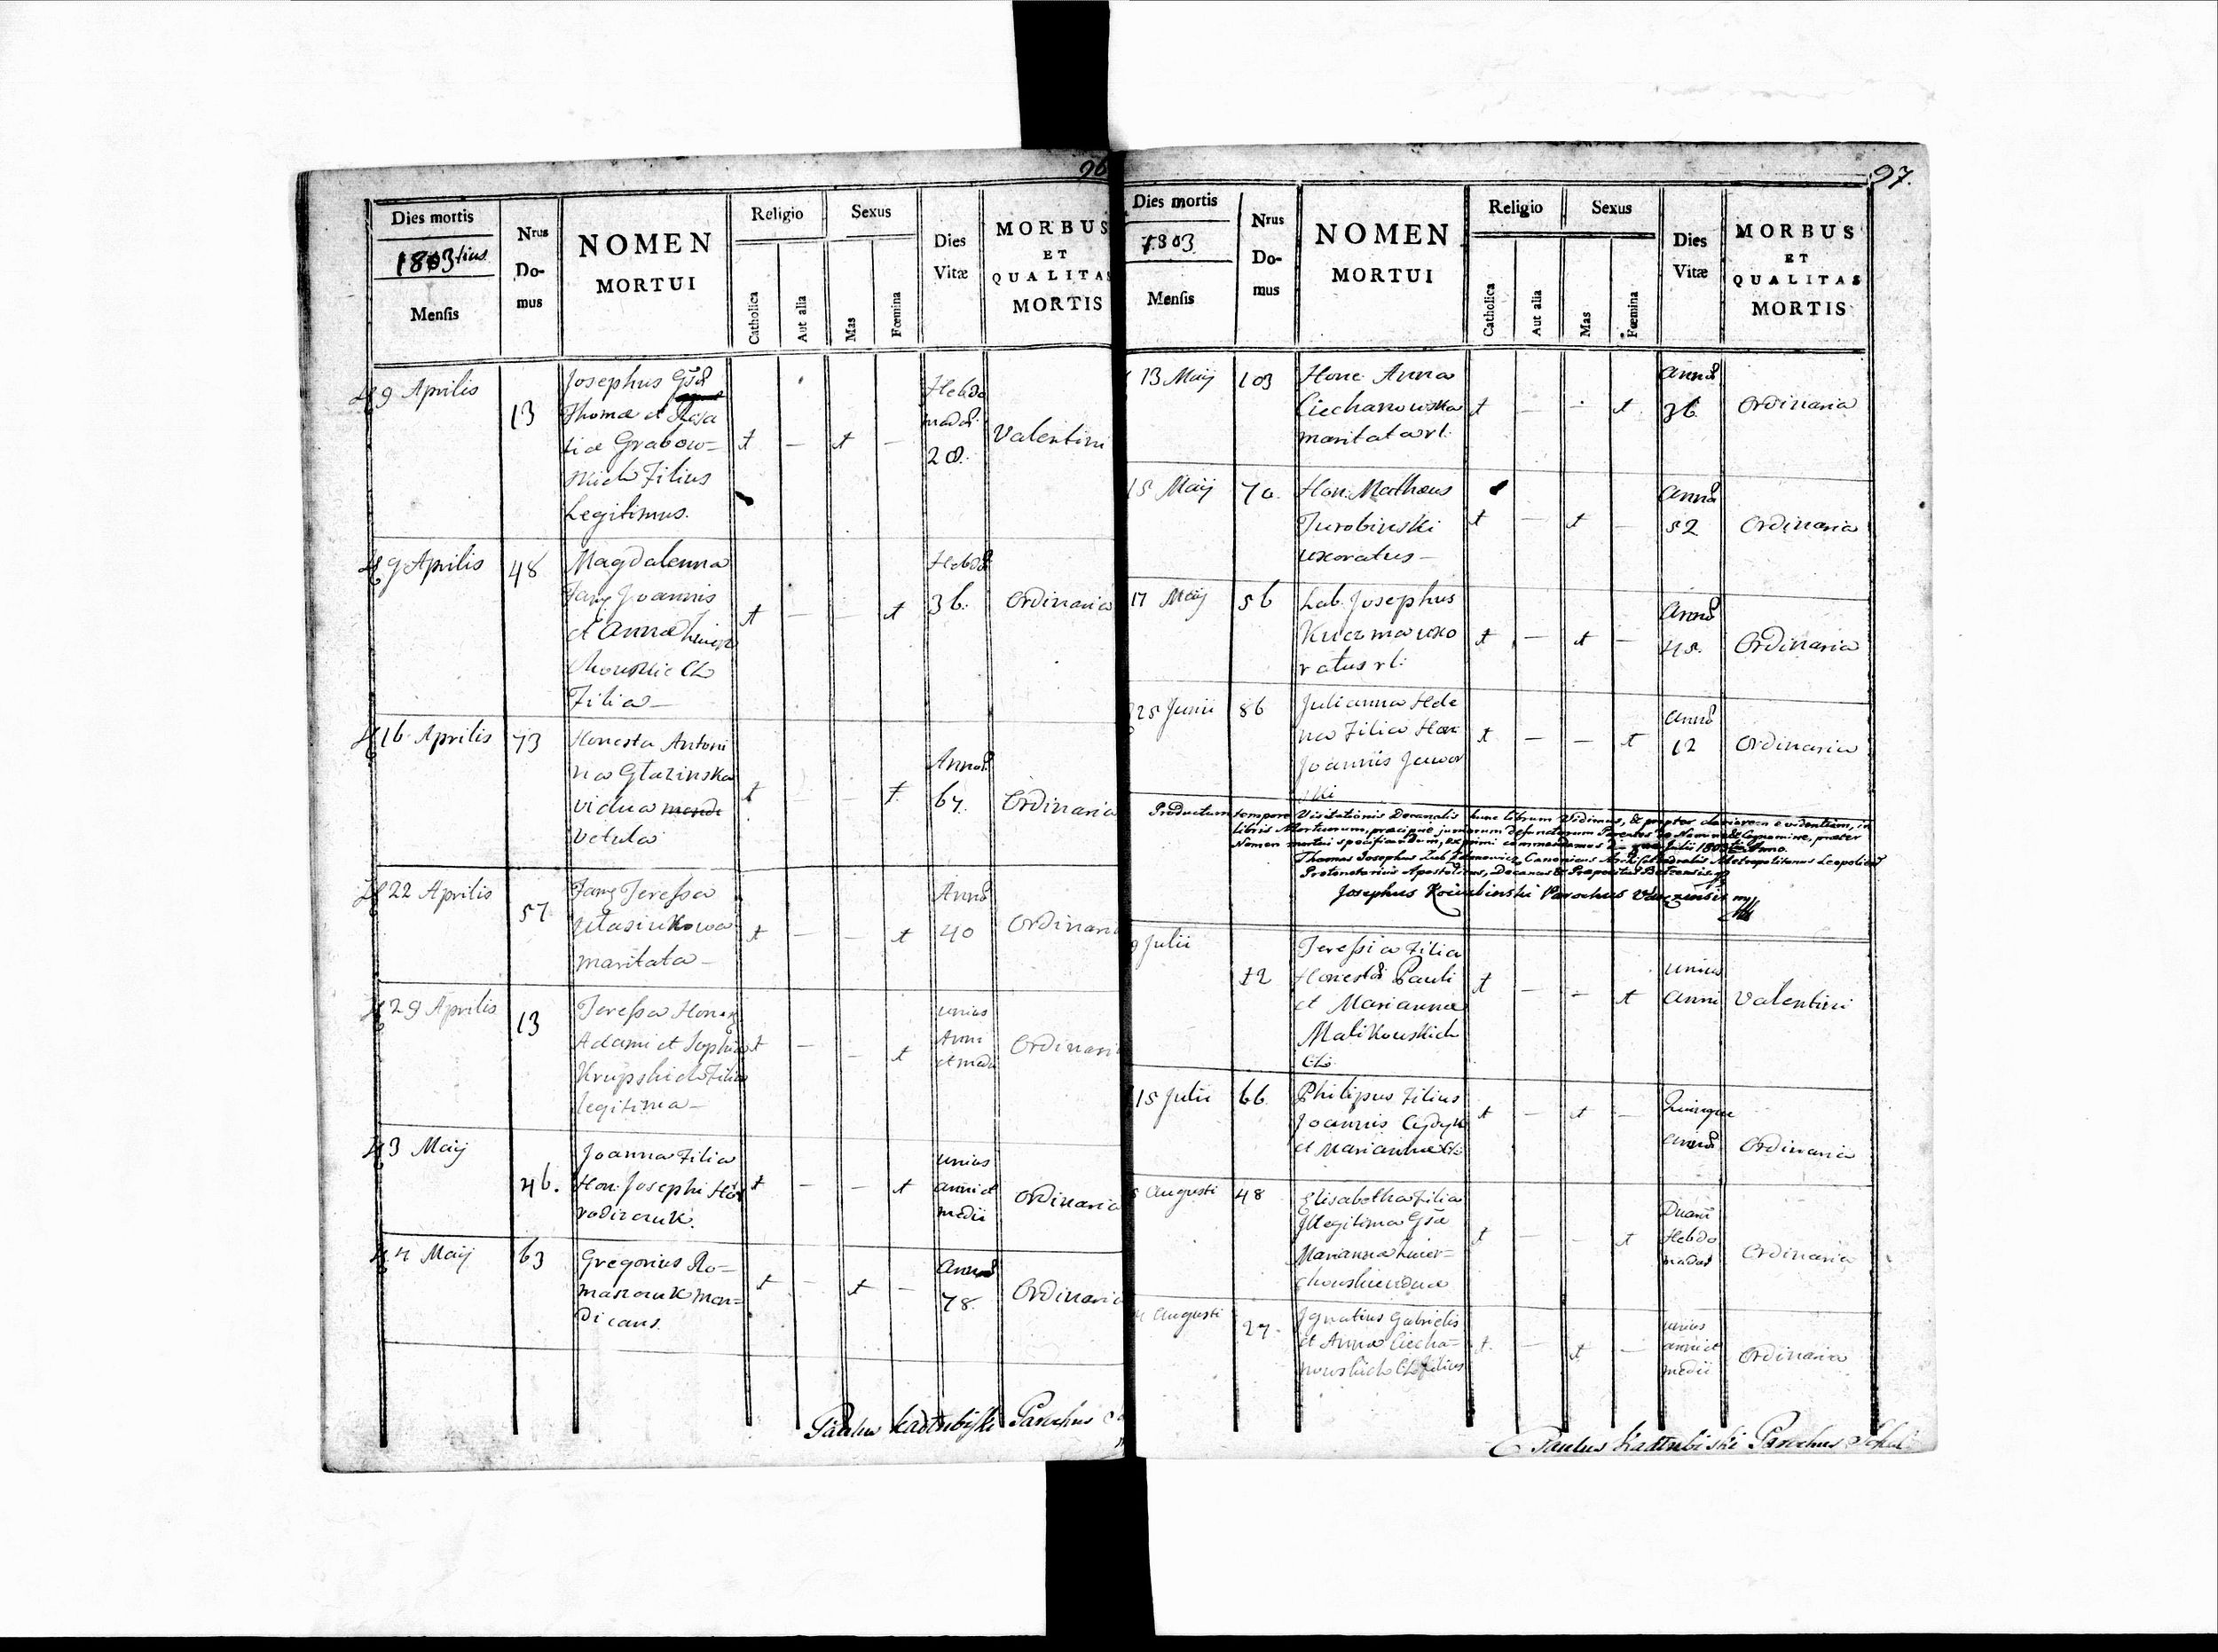 96
Dies mortis
1803tius
Mensis
Nrus
Do-
mus
NOMEN
MORTUI
Religio
Catholica
Aut alia
Sexus
Mas
Fœmina
Dies
Vitæ
MORBUS
ET
QUALITAS
MORTIS
9 Aprilis
13
Josephus
Thomæ et Rosa
liæ Grabow-
skich Filius
Legitimus.
t — t —
Hebdo
mad
28.
Valentini
9 Aprilis
48
Magdalenna
Joannis
et Annæ
Filia —
t — — t
Hebd
36.
Ordinaria
16 Aprilis
73
Honesta Antoni
na Głazinska
vidua
vetula
t — — t
Annor
67.
Ordinaria
22 Aprilis
57
Fam Teressa
maritata —
t — — t
Anno
40
Ordinaria
29 Aprilis
13
Teressa Hones
Adami et Sophia
Krupskich Filia
legitima —
t — — t
unius
Anni
et medii
Ordinaria
3 Maij
46.
Joanna Filia
Hon: Josephi Ho
rodiczuk.
t — — t
unius
anni et
medii
Ordinaria
4 Maij
63
Gregorius Ro-
manczuk men-
dicans.
t — t —
Anno
78.
Ordinaria
Paulus Kadłubiski Parochus
97.
Dies mortis
1803
Mensis
Nrus
Do-
mus
NOMEN
MORTUI
Religio
Catholica
Aut alia
Sexus
Mas
Fœmina
Dies
Vitæ
MORBUS
ET
QUALITAS
MORTIS
13 Maij
103
Hone Anna
Ciechanowska
maritata rl:
t — — t
Anno
36
Ordinaria
15 Maij
70.
Hon: Matheus
Turobinski
uxoratus —
t — t —
Anno
52
Ordinaria
17 Maij
56
Lab. Josephus
Kuczma uxo
ratus rl:
t — t —
Anno
45.
Ordinaria
25 Junii
86
Julianna Hele
na Filia Hon
Joannis Jawor
ski
t — — t
Anno
12
Ordinaria
Productum tempore Visitationis Decanalis hunc librum Vidimus, & propter clariorem evidentiam, in
libris Mortuorum, præcipue juniorum defunctorum Parentes de Nomine & Cognomine, præter
Nomen mortui specificandum, exprimi commendamus Julii 1803 Anno.
Thomas Josephus Canonicus Metropolitanus Leopolien
Protonotarius Apostolicus, Decanus & Præpositus
Josephus Kociubinski Parochus
9 Julii
12
Teressia Filia
Honestor Pauli
et Mariannæ
Malikowskich
t — — t
unius
Anni
Valentini
15 Julii
66
Philipus Filius
Joannis
et Mariannæ
t — t —
Quinque
annor
Ordinaria
Augusti
48
Elisabetha Filia
Illegitima
Marianna
t — — t
Duarum
Hebdo
madar
Ordinaria
Augusti
27.
Ignatius Gabrielis
et Annæ Ciecha-
nowskich filius
t — t —
unius
anni et
medii
Ordinaria
Paulus Kadłubiski Parochus